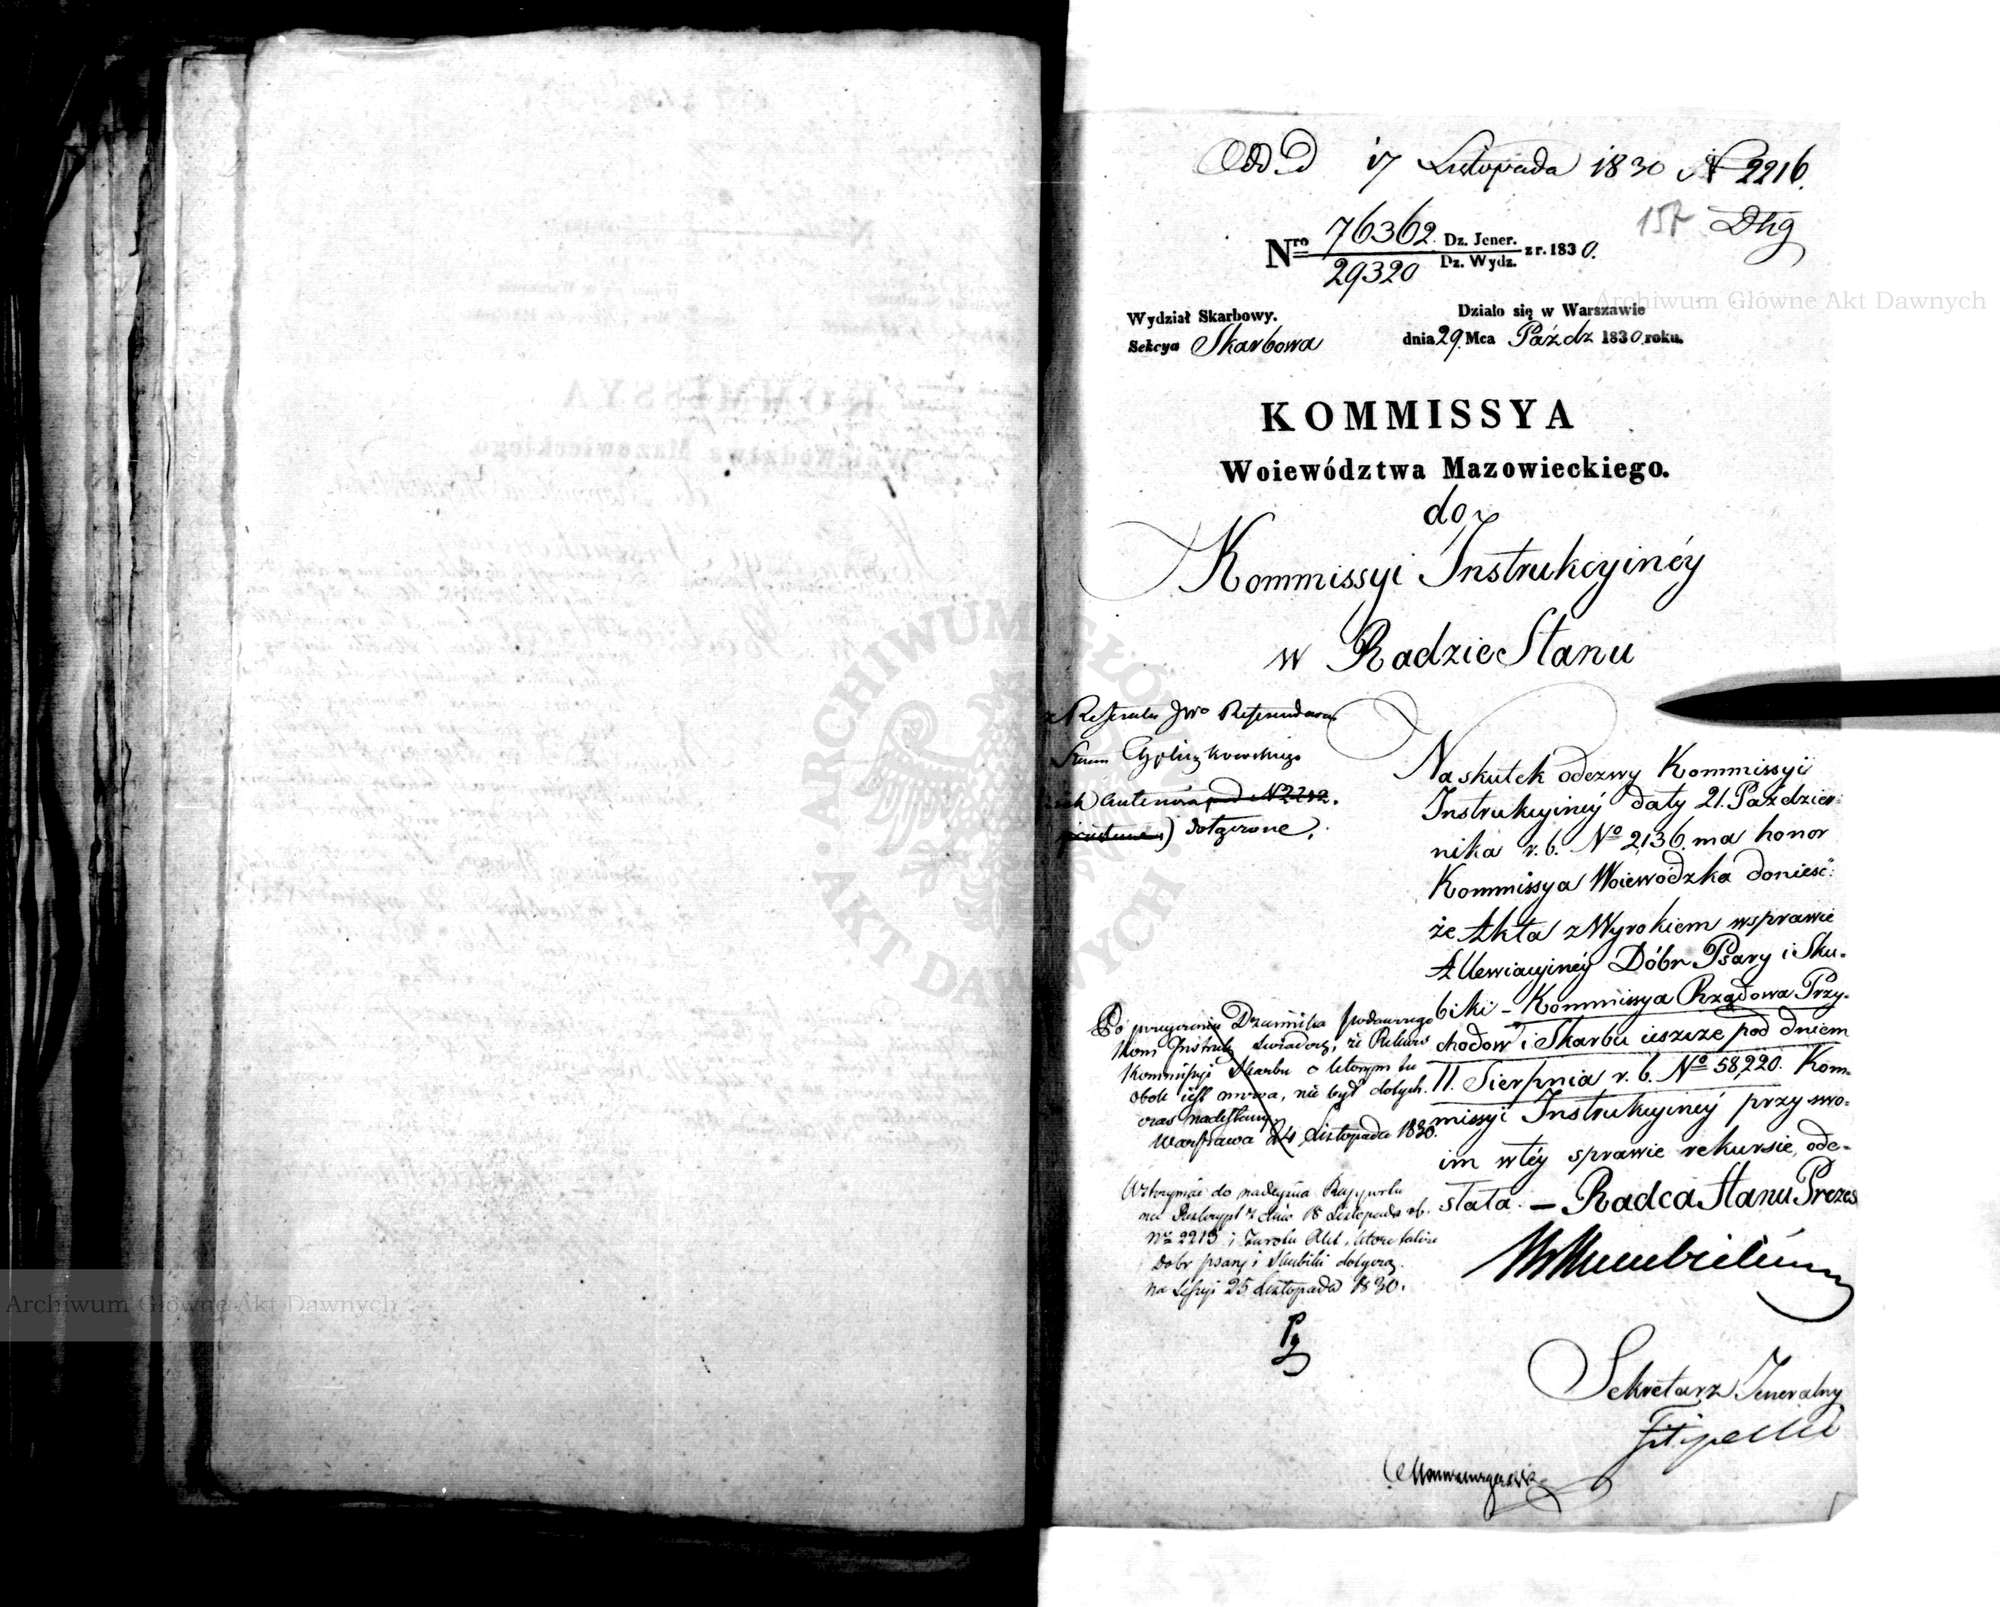 Odd D 17 Listopada 1830 N 2216.
157 Dhg
Nro 76362 Dz. Jener. z r. 1830.
29320 Dz. Wydz.
Wydział Skarbowy.
Sekcya Skarbowa
Działo się w Warszawie
dnia 29 Mca Paźdz 1830 roku.
KOMMISSYA
Woiewództwa Mazowieckiego.
do
Kommissyi Instrukcyinéy
w Radzie Stanu
Na skutek odezwy Kommissyi
Instrukcyinéy daty 21. Paździer:
nika r. b. No 2136. ma honor
Kommissya Woiewódzka donieść:
że Akta z Wyrokiem w sprawie
Allewiacyinéy Dóbr Psary i Sku-
biki - Kommissya Rządowa Przy-
chodów i Skarbu ieszcze pod dniem
11. Sierpnia r. b. No 58,220. Kom-
missyi Instrukcyinéy przy swo-
im w téy sprawie rekursie, ode-
słała. - Radca Stanu Prezes
Sekretarz Jeneralny
Filipecki
dołączone.
Po przejrzeniu Dziennika podawczego
Kom Instrukc świadczę, że Rekurs
Kommissyi Skarbu o którym tu
obok jest mowa, nie był dotych-
czas nadesłany
Warszawa d 24 Listopada 1830.
Wstrzymać do nadejścia Rapportu
na Reskrypt z dnia 18 Listopada rb.
Nr 2215 i zwrotu Akt, które także
Dobr Psary i Skubiki dotyczą.
na Sessyi 25 Listopada 1830.
Archiwum Główne Akt Dawnych
Archiwum Główne Akt Dawnych
ARCHIWUM GŁÓWNE
AKT DAWNYCH